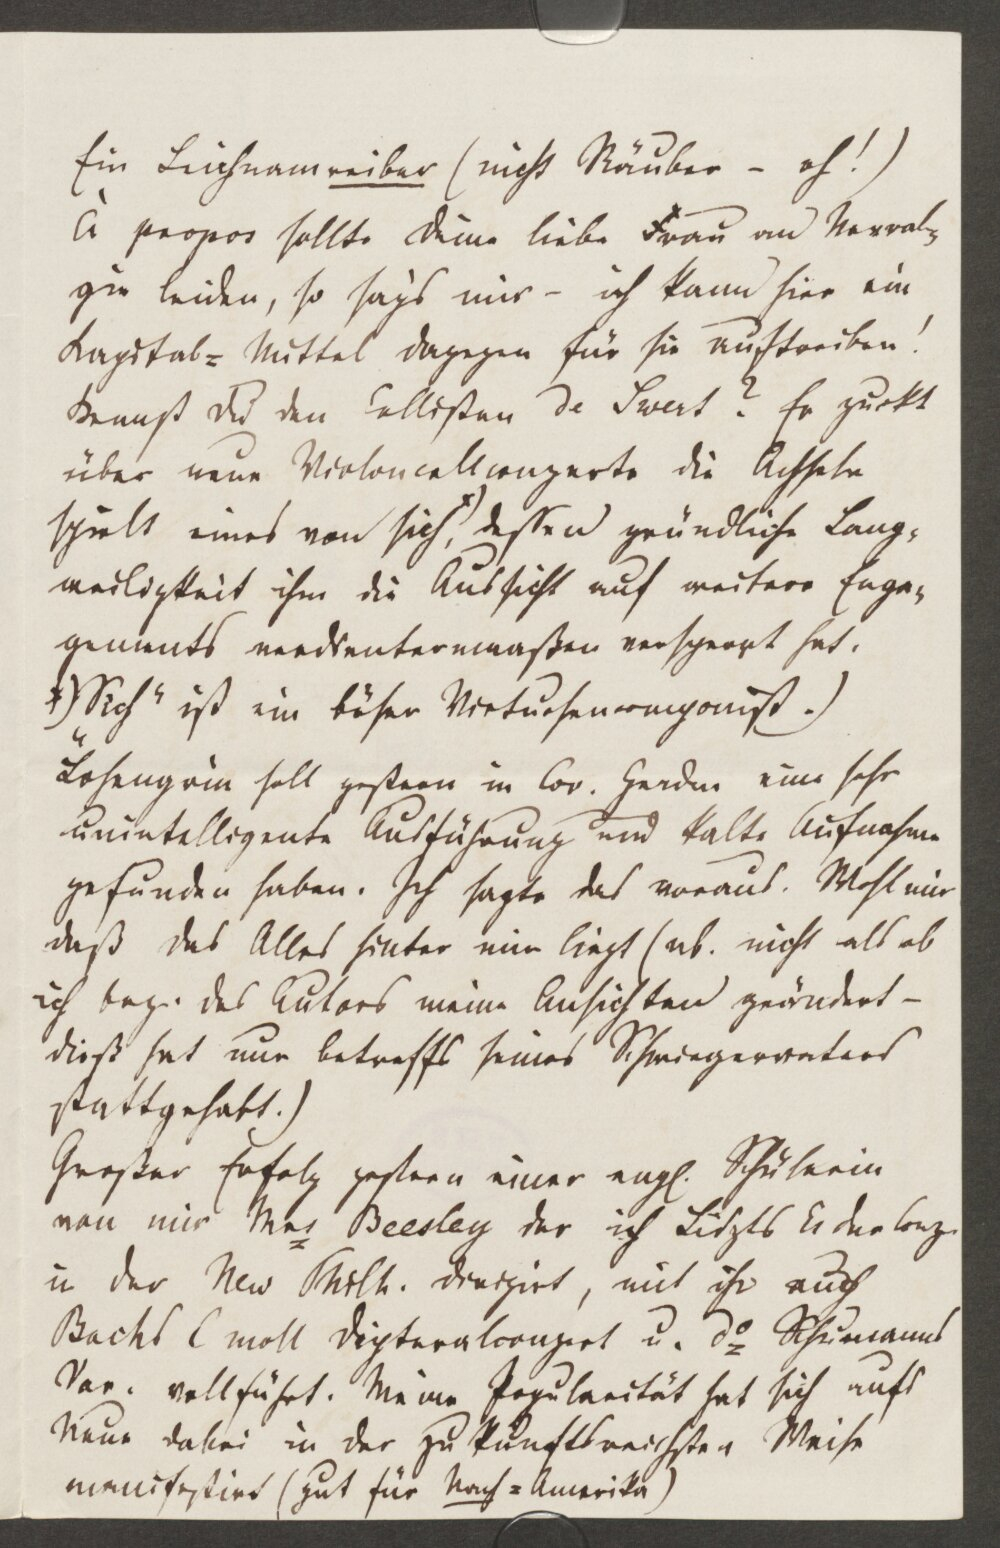 Ein Leichnamreiber (nicht Räuber – oh!)
À propos sollte Deine liebe Frau an Nevral=
gie leiden, so say's mir – ich kann hier ein
Kapital= Mittel dagegen für sie auftreiben!
Kennst Du den Cellisten de Swert? Er zuckt
über neue Violoncellconzerte die Achseln
spielt eines von sich,*) dessen gründliche Lang=
weiligkeit ihm die Aussicht auf weitere Enga=
gements verdientermaaßen versperrt hat.
*) „Sich“ ist ein böser Virtuosencomponist.)
Lohengrin soll gestern in Cov. Garden eine sehr
unintelligente Ausführung und kalte Aufnahme
gefunden haben. Ich sagte das voraus. Wohl mir
daß das Alles hinter mir liegt (nb. nicht als ob
ich bez. des Autors meine Ansichten geändert –
dieß hat nur betreffs seines Schwiegervaters
stattgehabt.)
Großer Erfolg gestern einer engl. Schülerin
von mir Mrs Beesley der ich Liszts Es dur Conz.
in der New Philh. dirigirt, mit ihr auch
Bachs C moll Dipteralconzert u. do Schumanns
Var. vollführt. Meine Popularität hat sich aufs
Neue dabei in der zukunftsreichsten Weise
manifestirt (gut für Nach=Amerika)